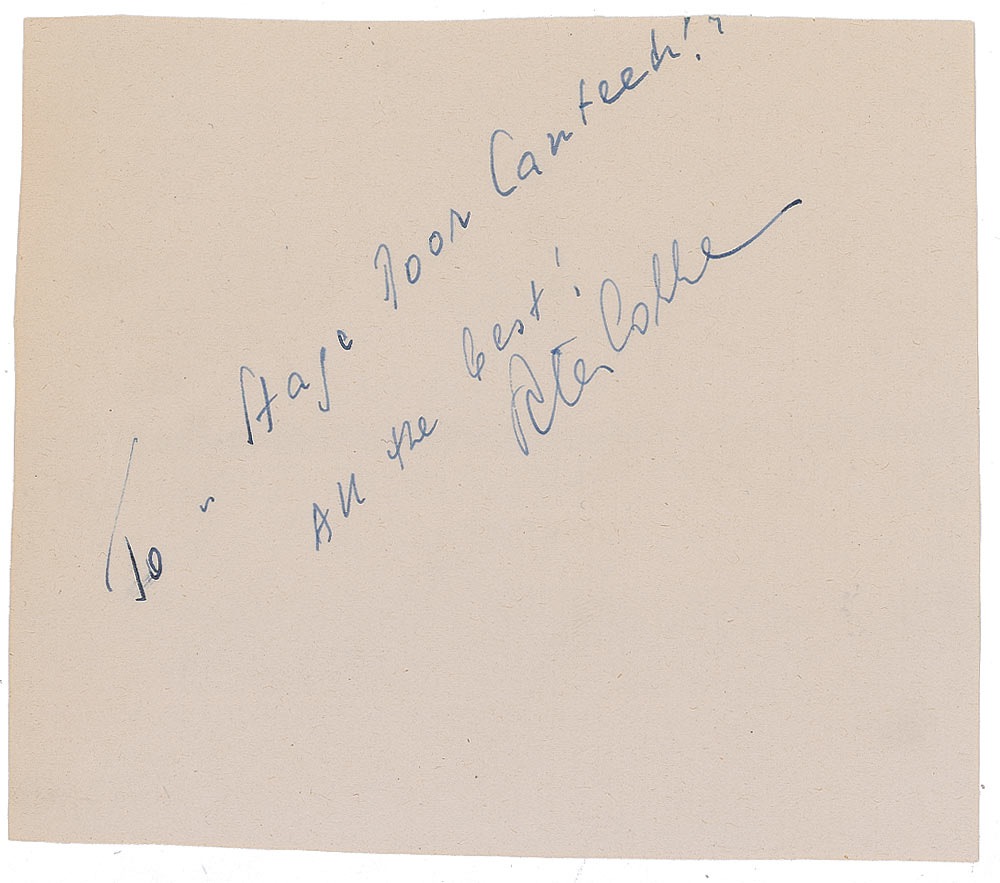 To "Stage Door Canteen!"
All the best!
Peter Lorre